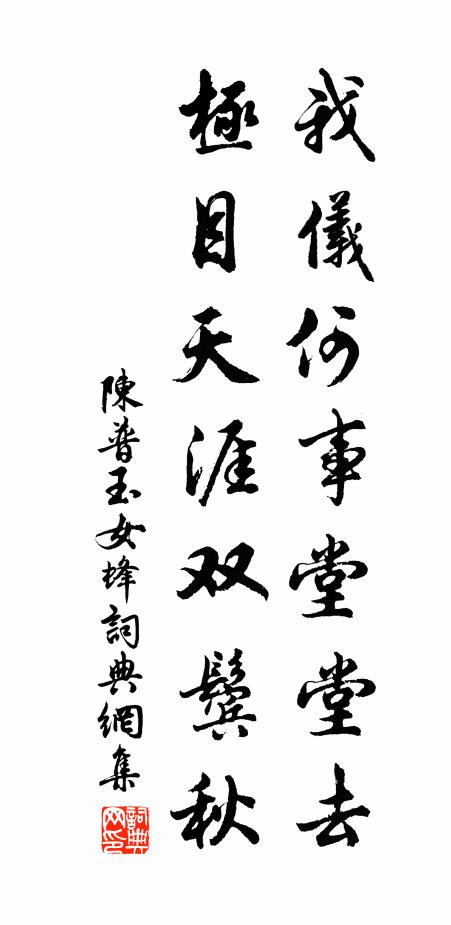 我儀何事堂堂去
極目天涯双鬓秋
陳普玉女蜂詞典網集
詞典網印